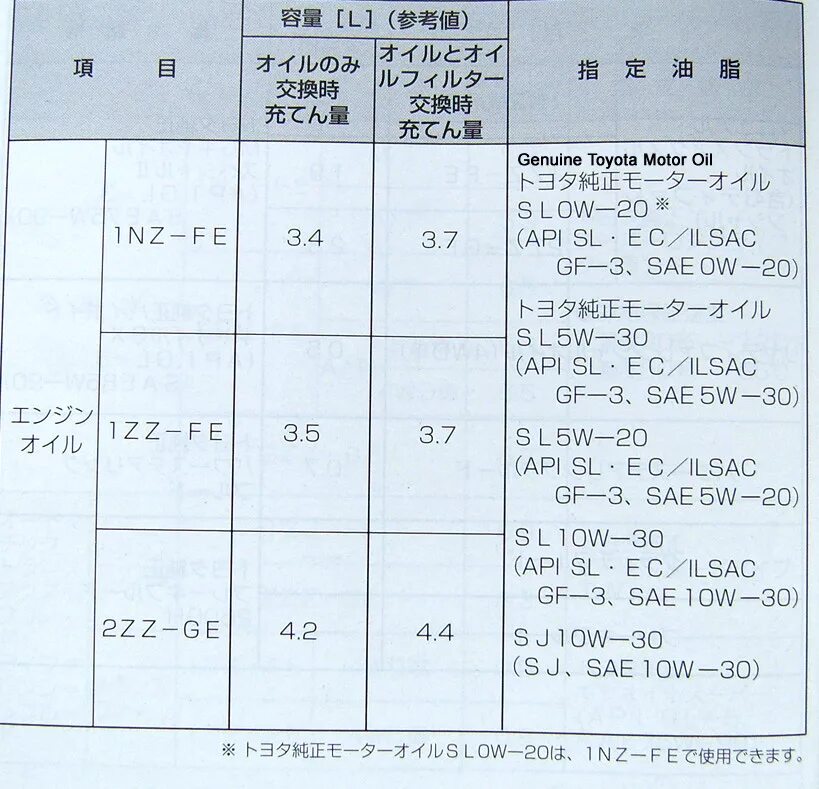 容量［Ｌ］（参考値）
項　目
オイルのみ
交換時
充てん量
オイルとオイ
ルフィルター
交換時
充てん量
指定油脂
エンジン
オイル
１ＮＺ－ＦＥ
3.4
3.7
１ＺＺ－ＦＥ
3.5
3.7
２ＺＺ－ＧＥ
4.2
4.4
Genuine Toyota Motor Oil
トヨタ純正モーターオイル
ＳＬ０Ｗ－20※
（API SL・ＥＣ／ILSAC
GF－3、SAE 0W－20）
トヨタ純正モーターオイル
ＳＬ５Ｗ－30
（API SL・ＥＣ／ILSAC
GF－3、SAE 5W－30）
ＳＬ５Ｗ－20
（API SL・ＥＣ／ILSAC
GF－3、SAE 5W－20）
ＳＬ10Ｗ－30
（API SL・ＥＣ／ILSAC
GF－3、SAE 10W－30）
ＳＪ10Ｗ－30
（ＳＪ、SAE 10W－30）
※ トヨタ純正モーターオイルＳＬ０Ｗ－20は、１ＮＺ－ＦＥで使用できます。